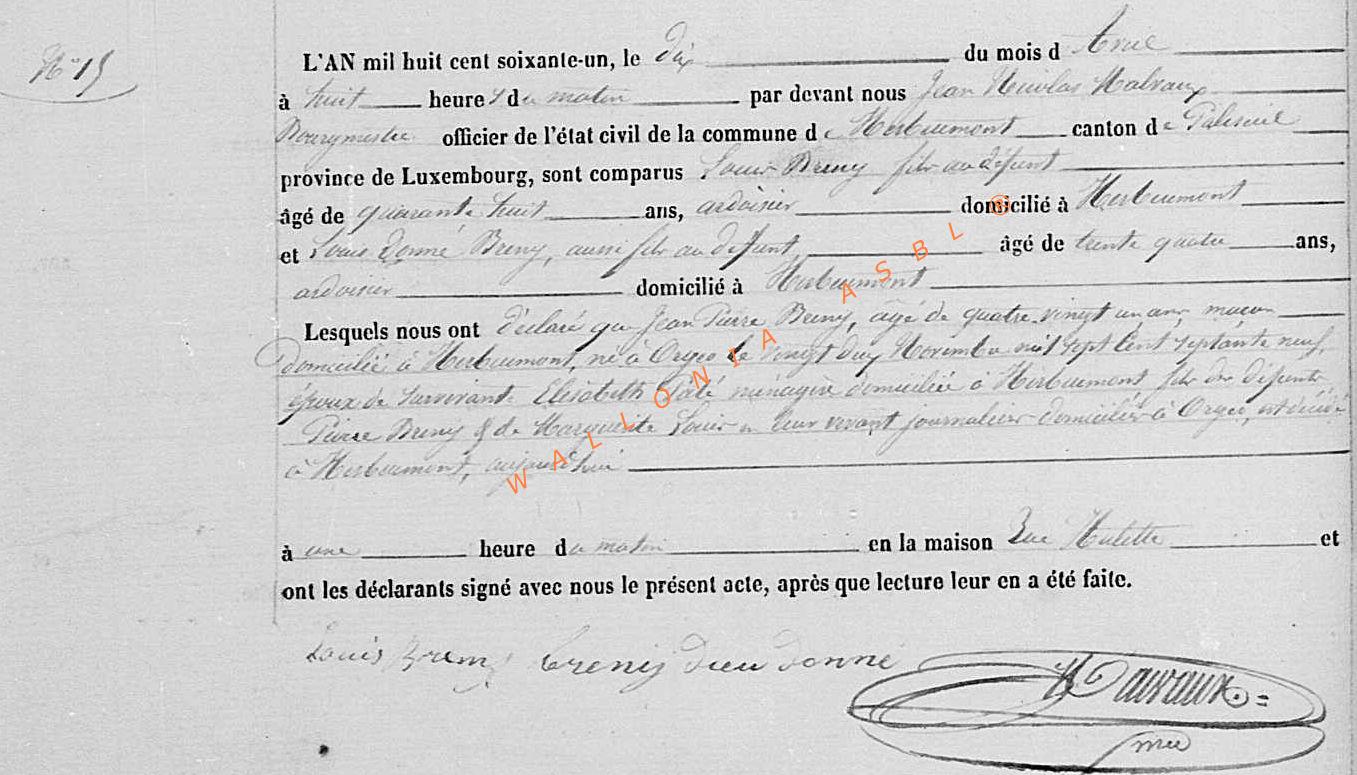 N° 15
L'AN mil huit cent soixante-un, le dix du mois d'Avril
à huit heures du matin par devant nous Jean Nicolas
Bourgmestre officier de l'état civil de la commune de Herbeumont canton de Paliseul
province de Luxembourg, sont comparus Louis Breny fils au défunt
âgé de quarante huit ans, ardoisier domicilié à Herbeumont
et Louis Donné Breny, aussi fils au défunt, âgé de trente quatre ans,
ardoisier domicilié à Herbeumont
Lesquels nous ont déclaré que Jean Pierre Breny, âgé de quatre-vingt un ans, maçon
domicilié à Herbeumont, né à Orgeo le vingt deux Novembre mil sept cent septante neuf,
époux de survivante Elisabeth ménagère domiciliée à Herbeumont fils des défunts
Pierre Breny & de Marguerite Louis en leur vivant journaliers domiciliés à Orgeo, est décédé
à Herbeumont, aujourd'hui
à une heure du matin en la maison Rue Hulette et
ont les déclarants signé avec nous le présent acte, après que lecture leur en a été faite.
Louis Breny Breny dieu donné
WALLONIA ASBL ®